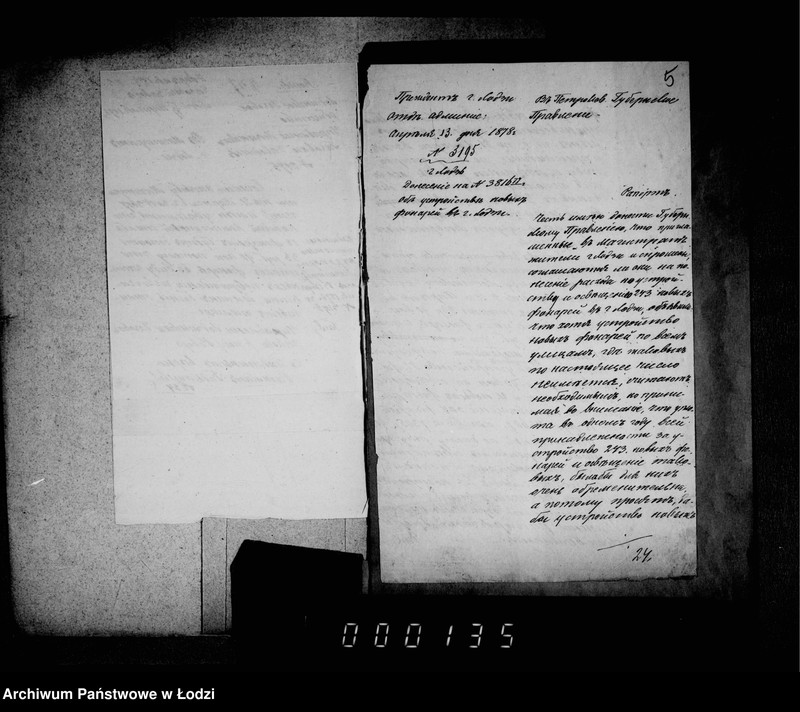 5
Президентъ г. Лодзи
отдѣ. админис:
Апрѣля 13 дня 1878 г.
N 3195
г. Лодзь
Донесеніе на N 3816
объ устройствѣ новыхъ
фонарей въ г. Лодзи.
Въ Петроков. Губернское
Правленіе.
Рапортъ.
Честь имѣю донести Губерн-
скому Правленію, что пригла-
шенные въ Магистратъ
жители г. Лодзи и спрошены,
соглашаются ли они на по-
несеніе расхода по устрой-
ству и освѣщенію 243 новыхъ
фонарей въ г. Лодзи, объявили
что хотя устройство
новыхъ фонарей по всѣмъ
улицамъ, гдѣ таковыхъ
по настоящее число
неимѣется, считаютъ
необходимымъ, но прини-
мая во вниманіе, что упла-
та въ одномъ году всей
причитающейся за у-
стройство 243 новыхъ фо-
нарей и освѣщеніе тако-
выхъ, была бы для нихъ
очень обременительна,
а потому просятъ, да-
бы устройство новыхъ
24.
000135
Archiwum Państwowe w Łodzi